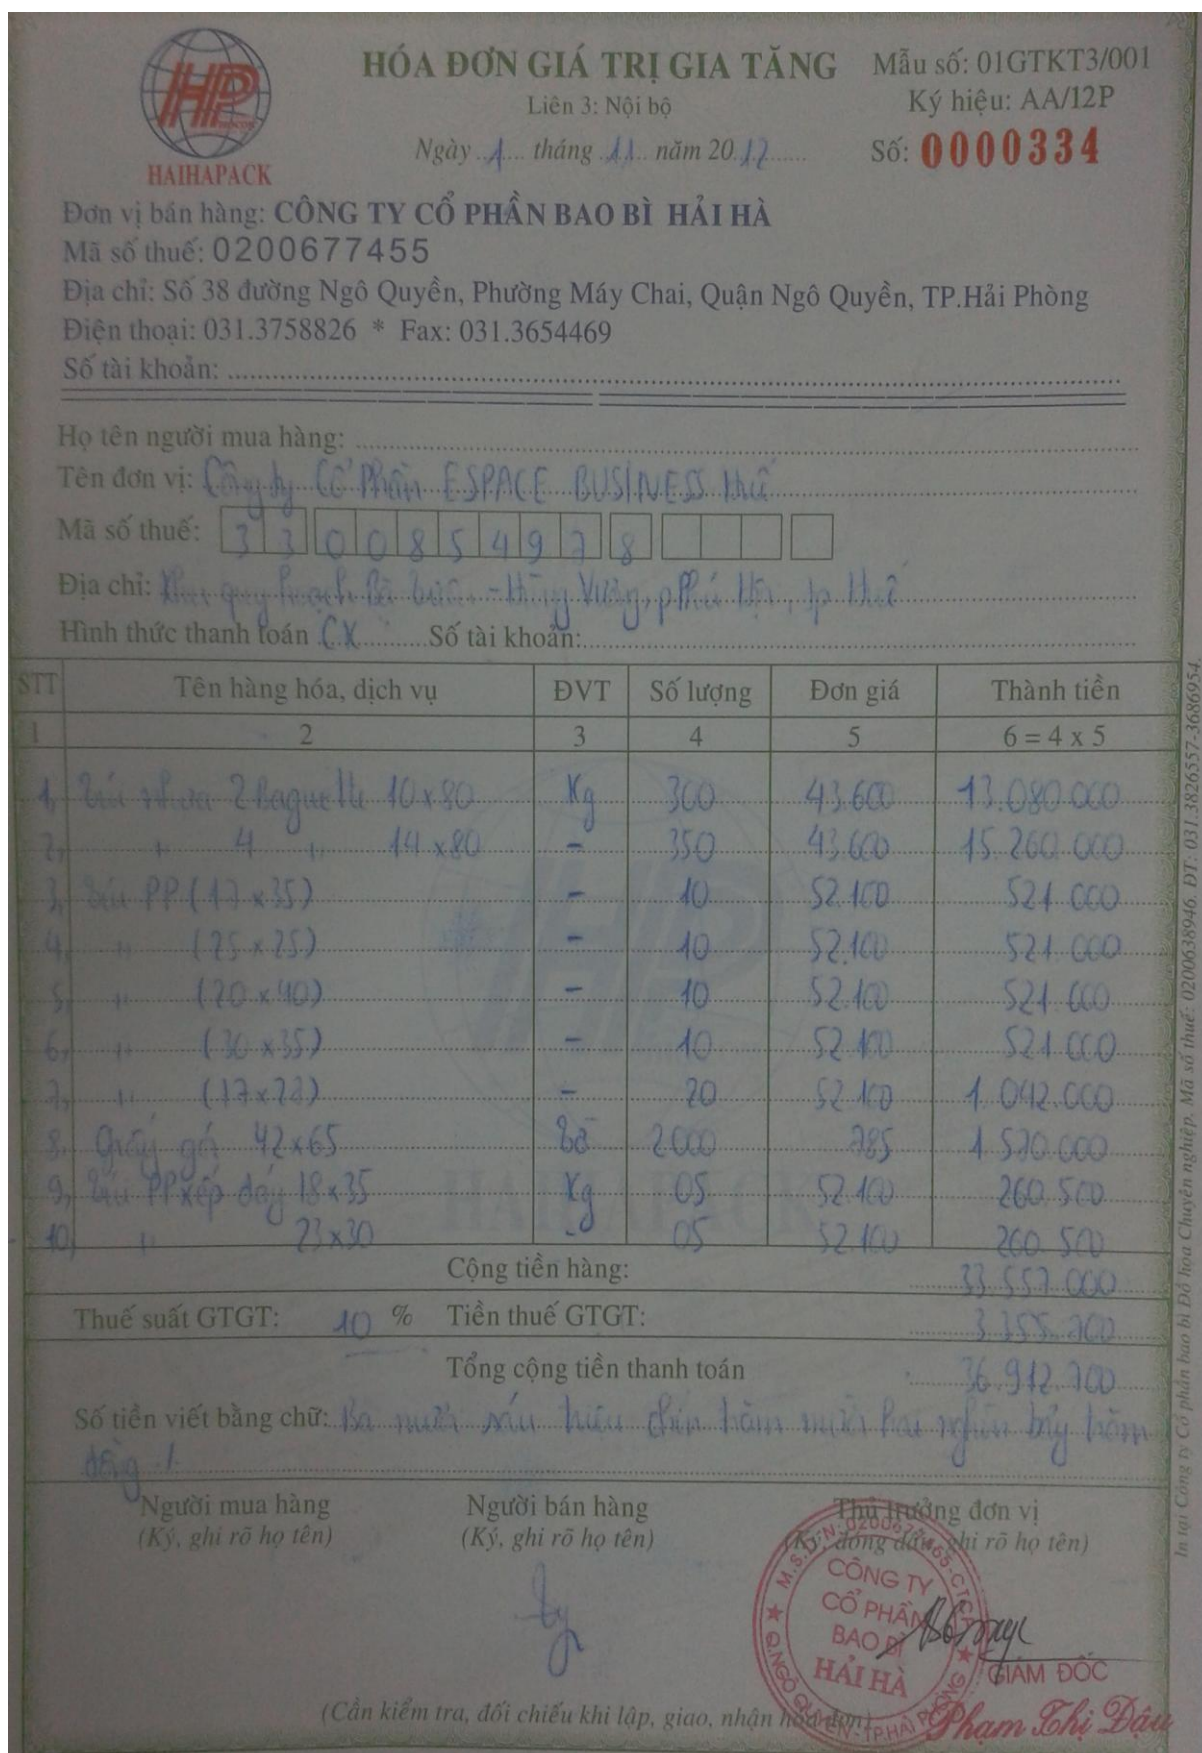 HÓA ĐƠN GIÁ TRỊ GIA TĂNG
Mẫu số: 01GTKT3/001
Liên 3: Nội bộ
Ký hiệu: AA/12P
Ngày 1 tháng 11 năm 2012
Số: 0000334
HAIHAPACK
Đơn vị bán hàng: CÔNG TY CỔ PHẦN BAO BÌ HẢI HÀ
Mã số thuế: 0200677455
Địa chỉ: Số 38 đường Ngô Quyền, Phường Máy Chai, Quận Ngô Quyền, TP.Hải Phòng
Điện thoại: 031.3758826 * Fax: 031.3654469
Số tài khoản:
Họ tên người mua hàng:
Tên đơn vị: Công ty Cổ Phần ESPACE BUSINESS Huế
Mã số thuế: 3300854978
Địa chỉ: Khu quy hoạch Bà Triệu - Hùng Vương, p Phú Hội, tp Huế
Hình thức thanh toán CK Số tài khoản:
STT Tên hàng hóa, dịch vụ ĐVT Số lượng Đơn giá Thành tiền
1 2 3 4 5 6 = 4 x 5
1, Túi nhựa 2 Baguette 10x80 Kg 300 43.600 13.080.000
2, " 4 " 14x80 - 350 43.600 15.260.000
3, Túi PP (17x35) - 10 52.100 521.000
4, " (25x25) - 10 52.100 521.000
5, " (20x40) - 10 52.100 521.000
6, " (30x35) - 10 52.100 521.000
7, " (17x22) - 20 52.100 1.042.000
8, Giấy gói 42x65 Tờ 2.000 785 1.570.000
9, Túi PP xếp đáy 18x35 Kg 05 52.100 260.500
10, " 23x30 - 05 52.100 260.500
Cộng tiền hàng: 33.557.000
Thuế suất GTGT: 10 % Tiền thuế GTGT: 3.355.700
Tổng cộng tiền thanh toán 36.912.700
Số tiền viết bằng chữ: Ba mươi sáu triệu chín trăm mười hai nghìn bảy trăm
đồng /
Người mua hàng Người bán hàng Thủ trưởng đơn vị
(Ký, ghi rõ họ tên) (Ký, ghi rõ họ tên) (Ký, đóng dấu, ghi rõ họ tên)
M.S.D.N: 0200677455-C.T.C.P
CÔNG TY
CỔ PHẦN
BAO BÌ
HẢI HÀ
Q.NGÔ QUYỀN - TP HẢI PHÒNG
GIÁM ĐỐC
Phạm Thị Dậu
(Cần kiểm tra, đối chiếu khi lập, giao, nhận hóa đơn)
In tại Công ty Cổ phần bao bì Đồ họa Chuyên nghiệp. Mã số thuế: 0200638946. ĐT: 031.3826557-3686954.